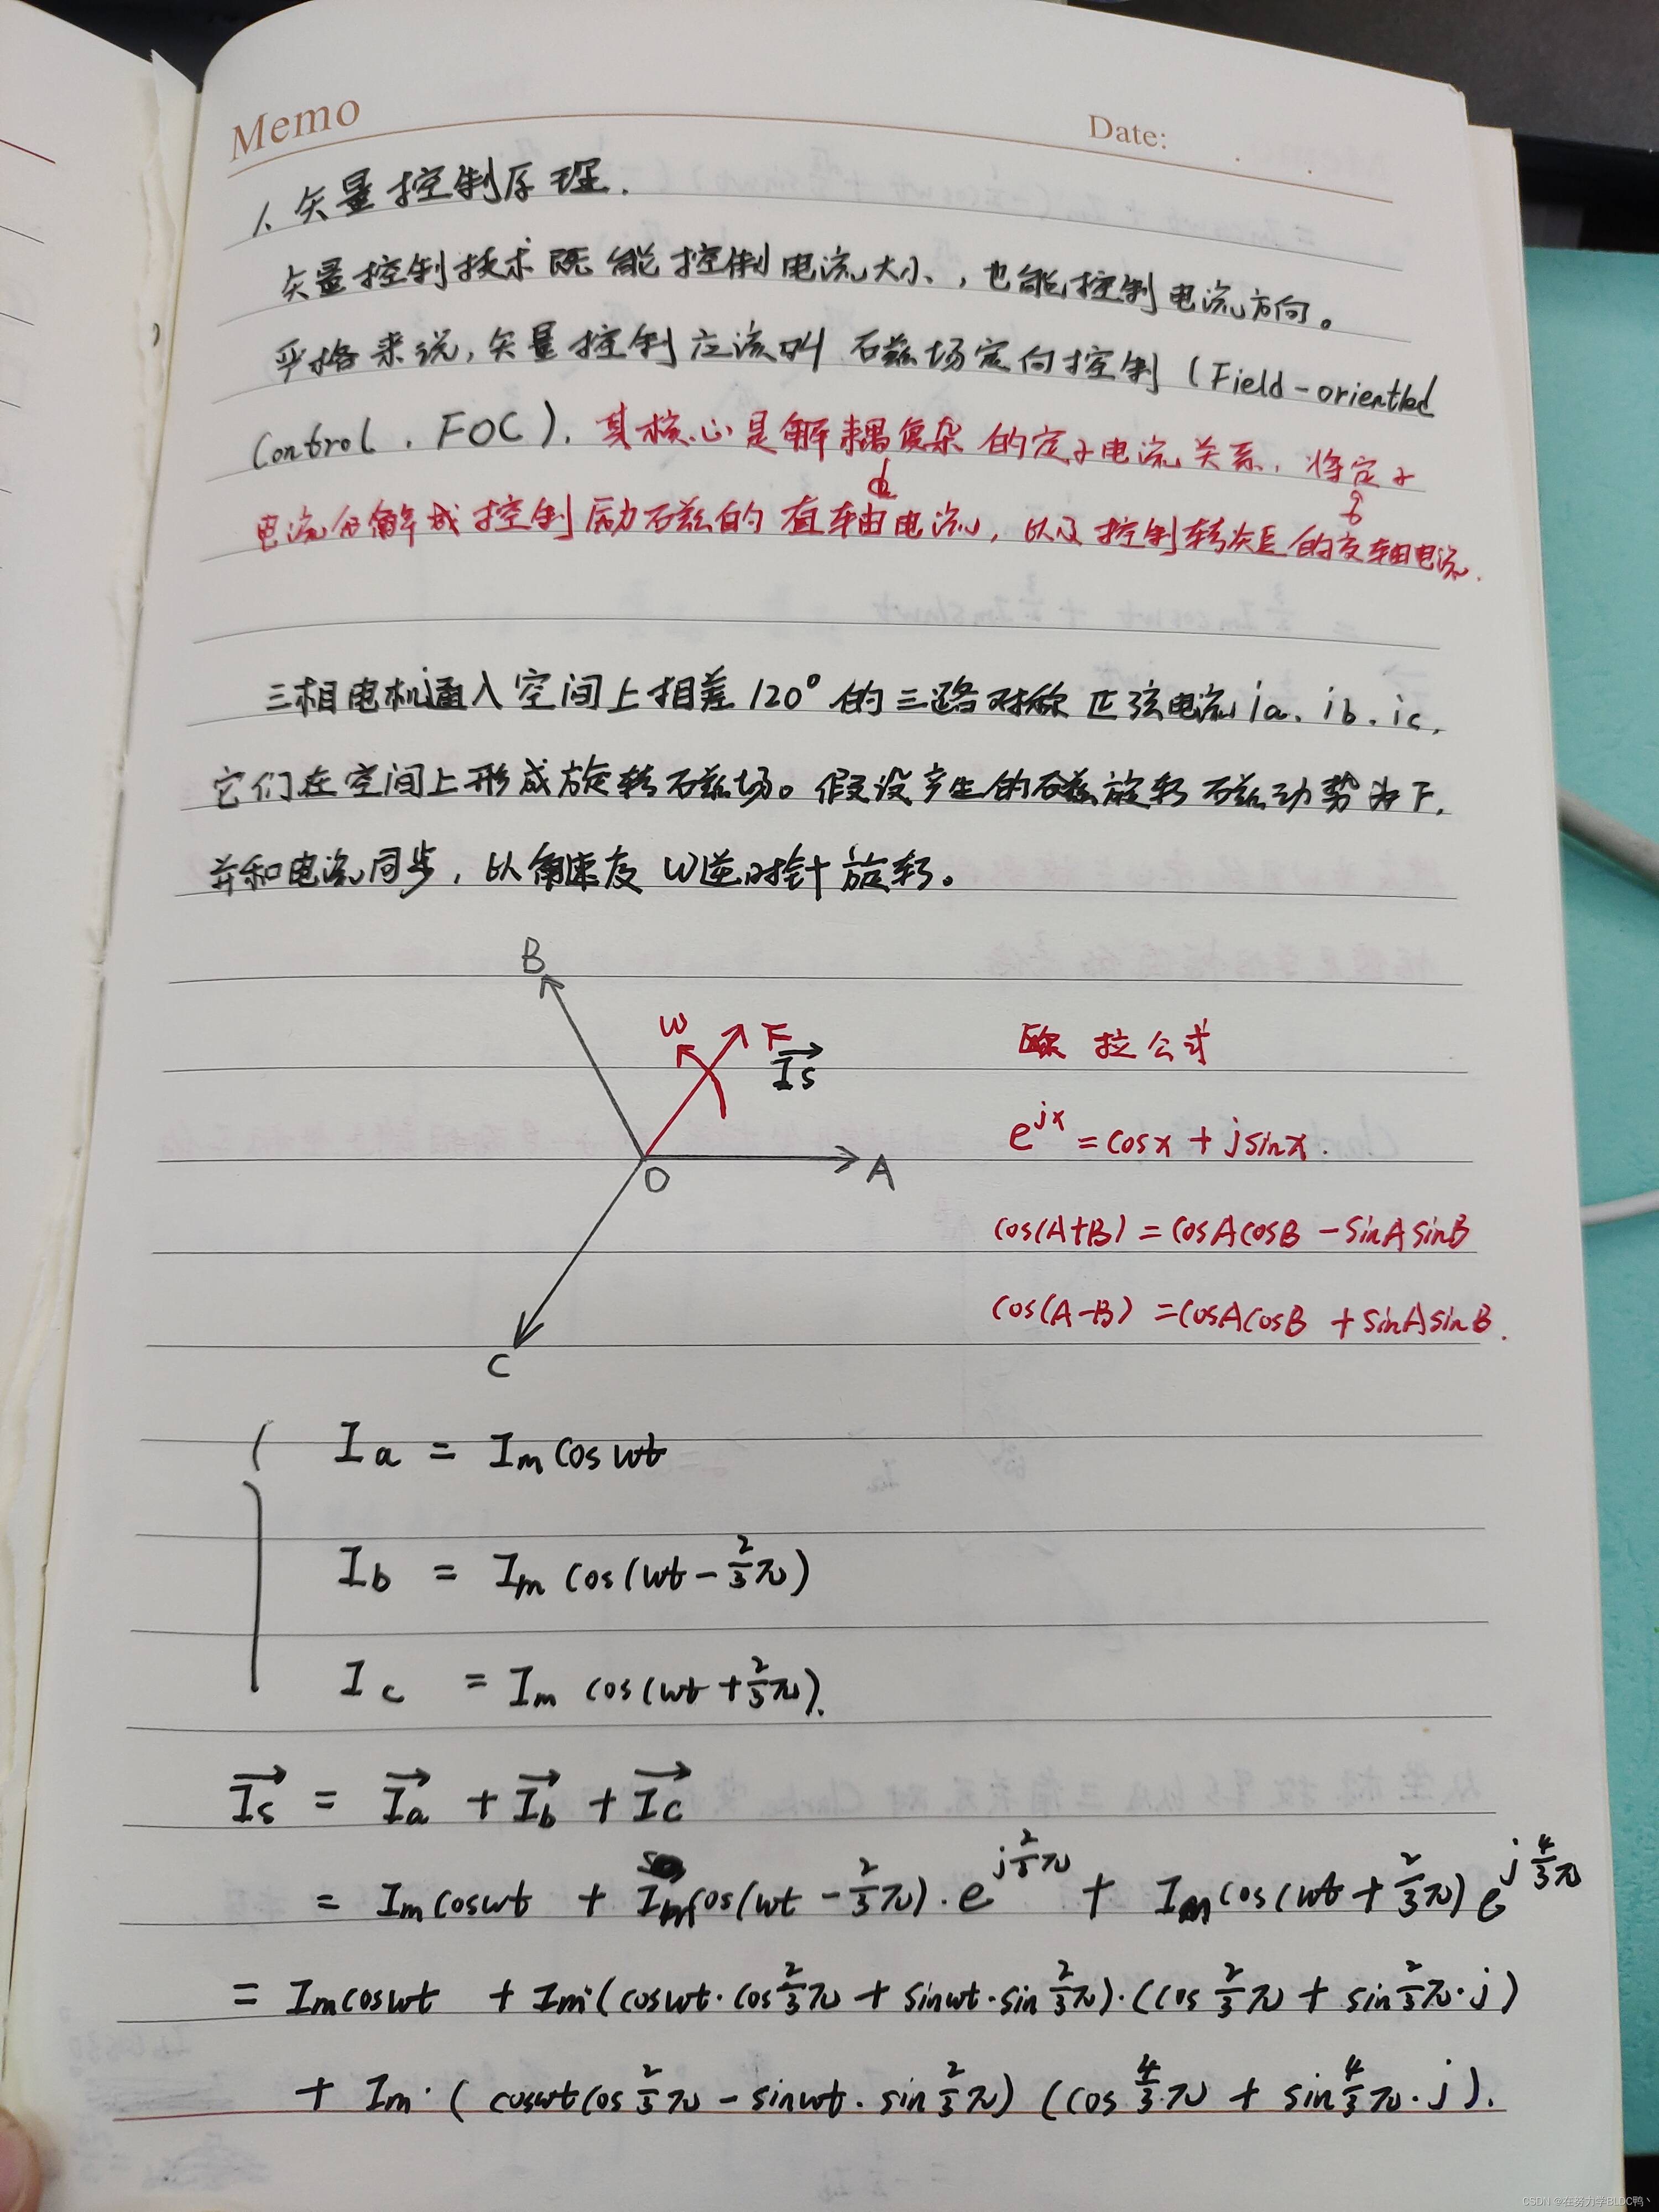 Memo
Date:
1. 矢量控制原理.
矢量控制技术既能控制电流大小,也能控制电流方向。
严格来说,矢量控制应该叫磁场定向控制(Field-oriented
Control . FOC). 其核心是解耦复杂的定子电流关系, 将定子
d
q
电流分解成控制励磁的直轴电流, 以及控制转矩的交轴电流.
三相电机通入空间上相差120°的三路对称正弦电流ia. ib. ic,
它们在空间上形成旋转磁场。假设产生的磁旋转磁动势为F,
并和电流同步, 以角速度 w逆时针旋转。
B
w F
Is
O
A
C
欧拉公式
e^{jx} = cosx + jsinx.
cos(A+B) = cosAcosB - sinAsinB
cos(A-B) = cosAcosB + sinAsinB.
Ia = Im cos wt
Ib = Im cos(wt - 2/3π)
Ic = Im cos(wt + 2/3π).
Is = Ia + Ib + Ic
= Im coswt + Im cos(wt - 2/3π)·e^{j2/3π} + Im cos(wt + 2/3π) e^{j4/3π}
= Imcoswt + Im·(coswt·cos2/3π + sinwt·sin2/3π)·(cos2/3π + sin2/3π·j)
+ Im·(coswtcos2/3π - sinwt·sin2/3π)(cos4/3π + sin4/3π·j).
CSDN @在努力学BLDC鸭丶